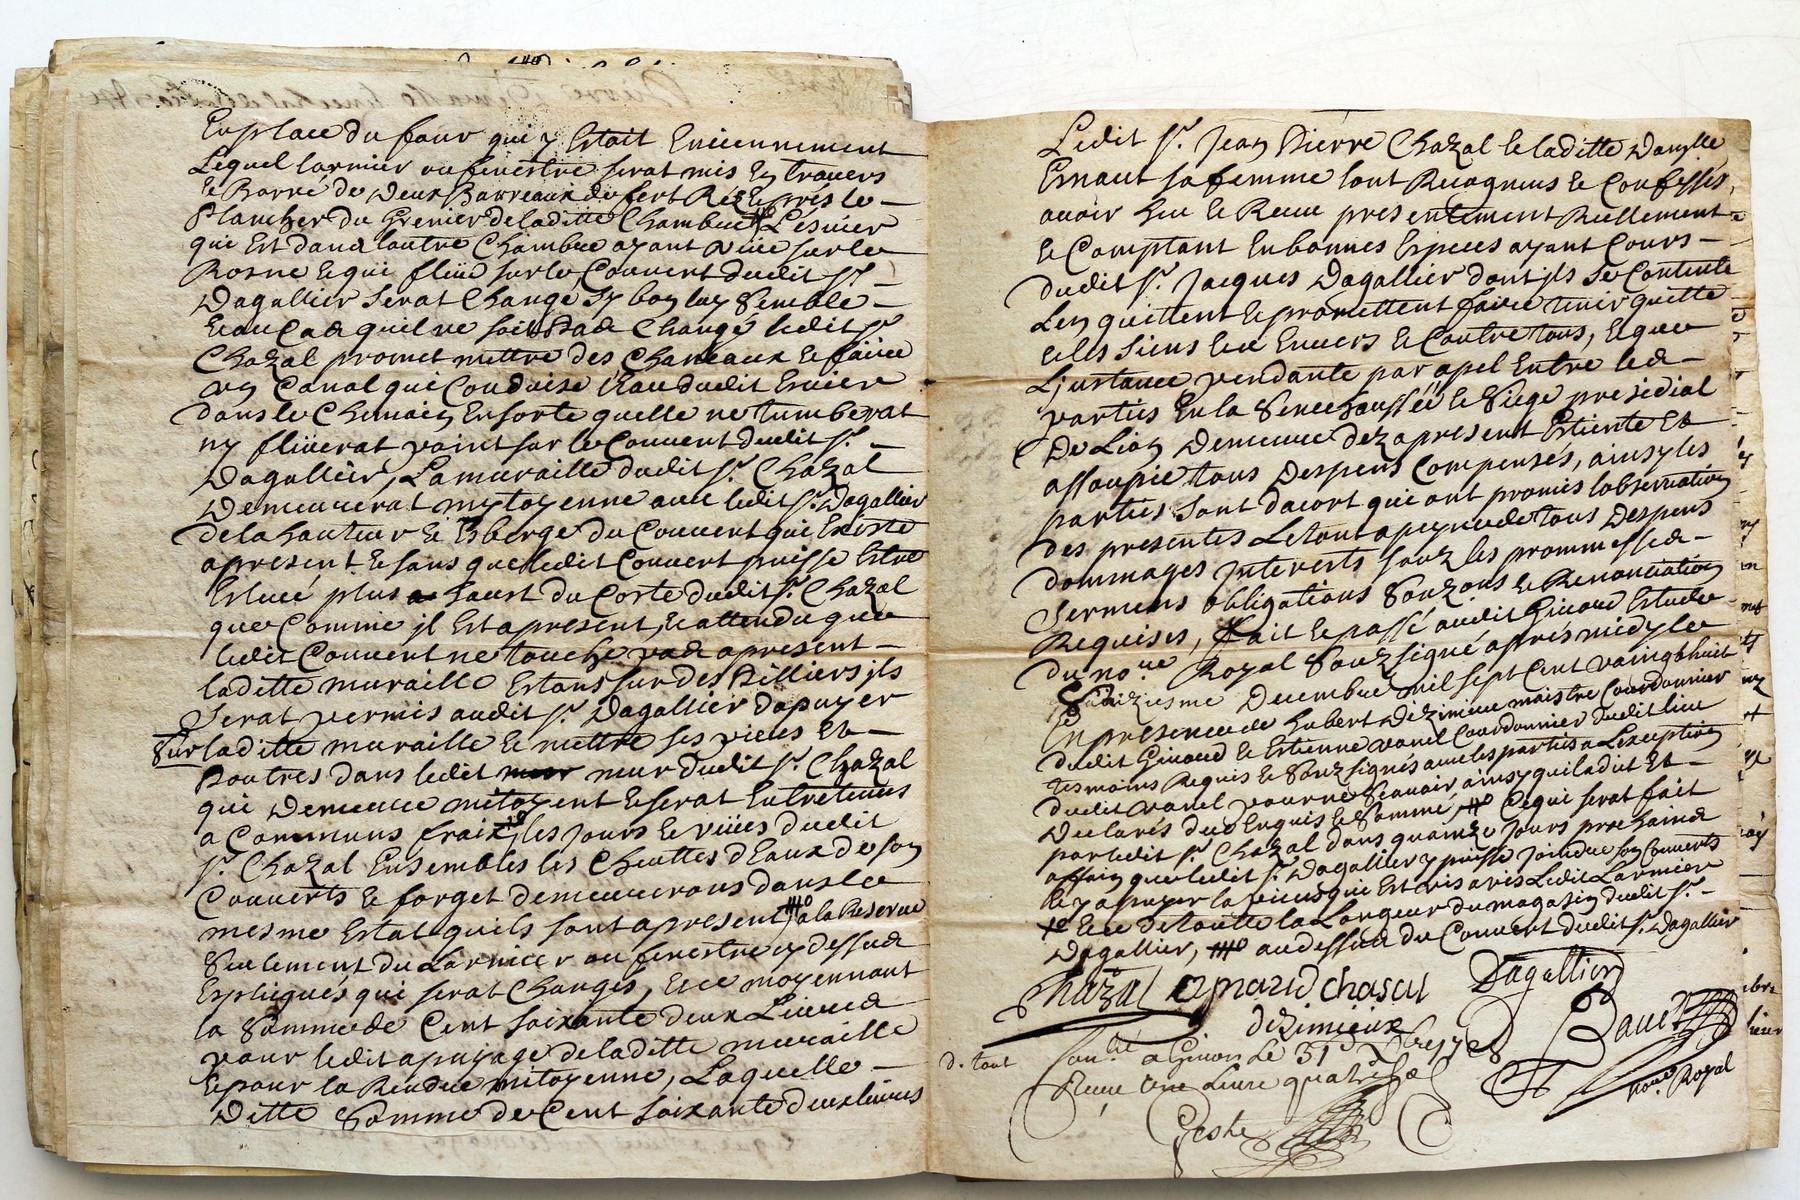 En place du four qui y Estait Enciennement
Lequel larmier ou fenestre serat mis En travers
et Barré de deux Barreaux de fert Rès et près le
Plancher du Grenier de laditte Chambre Lésvier
qui Est dans lautre Chambre ayant vüe sur le
Rosne et qui flüe sur le Couvert dudit Sr
Dagallier serat Changé sy bon luy semble
Et au Cas quil ne soit Pas Changé ledit Sr
Chazal promet mettre des Chaneaux et faire
un Canal qui Conduise lEau dudit Esvier
dans le Chemain En sorte quelle ne tumberat
ny fluerat point sur le Couvert dudit Sr
Dagallier, La muraille dudit Sr Chazal
Demeurerat mytoyenne avec ledit Sr Dagallier
de la hauteur et Esberge du Couvert qui Existe
apresent et sans que ledit Couvert puisse Estre
Eslevé plus haust du Coste dudit Sr Chazal
que Comme jl Est apresent, et attendu que
ledit Couvert ne touche pas apresent
laditte muraille Estans sur des Pilliers jls
serat permis audit Sr Dagallier dapuyer
sur laditte muraille et mettre ses pieces Et
Poutres dans ledit mur dudit Sr Chazal
qui Demeure mitoyent et serat Entretenus
a Communs fraix, les jours et vües dudit
Sr Chazal Ensembles les Cheuttes d'Eaux de son
Couverts et forget demeurerons dans le
mesme Estat quils sont apresent a la Reserve
seulement du Larmier ou fenestre cy dessus
Expliqués qui serat Changés, Et ce moyennant
la somme de Cent soixante deux Livres
pour ledit apuyage de laditte muraille
et pour la Rendre mitoyenne, Laquelle
Ditte somme de Cent soixante deux livres
Ledit Sr Jean Pierre Chazal et laditte Damlle
Ernaut sa femme sont Recognus et Confesses
avoir heu et Receu presentement Reellement
et Comptant En bonnes Especes ayant Cours
dudit Sr Jacques Dagallier dont jls se Contente
Len quittent et promettent faire tenir quitte
et les siens Envers et Contre tous, et que
Ljnstance pendante par apel Entre les
parties En la senechaussée et siege presidial
De Lion Demeure dez apresent Esteinte Et
assoupie tous Despens Compensés, ainsy les
parties sont dacort qui ont promis lobservation
des presentes Le tout a peyne de tous Despens
dommages jnterests souz les prommesses
sermens obligations souzons et Renonciation
Requises, fait et passé audit Girond Estude
du nore Royal souz signé après midy le
seizieme Decembre mil sept Cent vaingt huit
En presence de hubert dezimieux maistre Courdonnier
dudit Girond et Estienne vanel Courdonnier dudit lieu
tesmoins Requis et souz signés avec les parties a Lexception
dudit vanel pour ne sçavoir, ainsy quil a dit Et
Declarés de ce Enquis et sommé, Ce qui serat fait
par ledit Sr Chazal dans quainze jours prochains
affain que ledit Sr Dagallier y puisse joindre son Couverts
et y apuyer la piece qui Est vis a vis Ledit Larmier
Et ce de toutte la Largeur du magasin dudit Sr
Dagallier, au dessus du Couvert dudit Sr Dagallier
Chazal Dagallier
dezimieux
nore Royal
d. tout